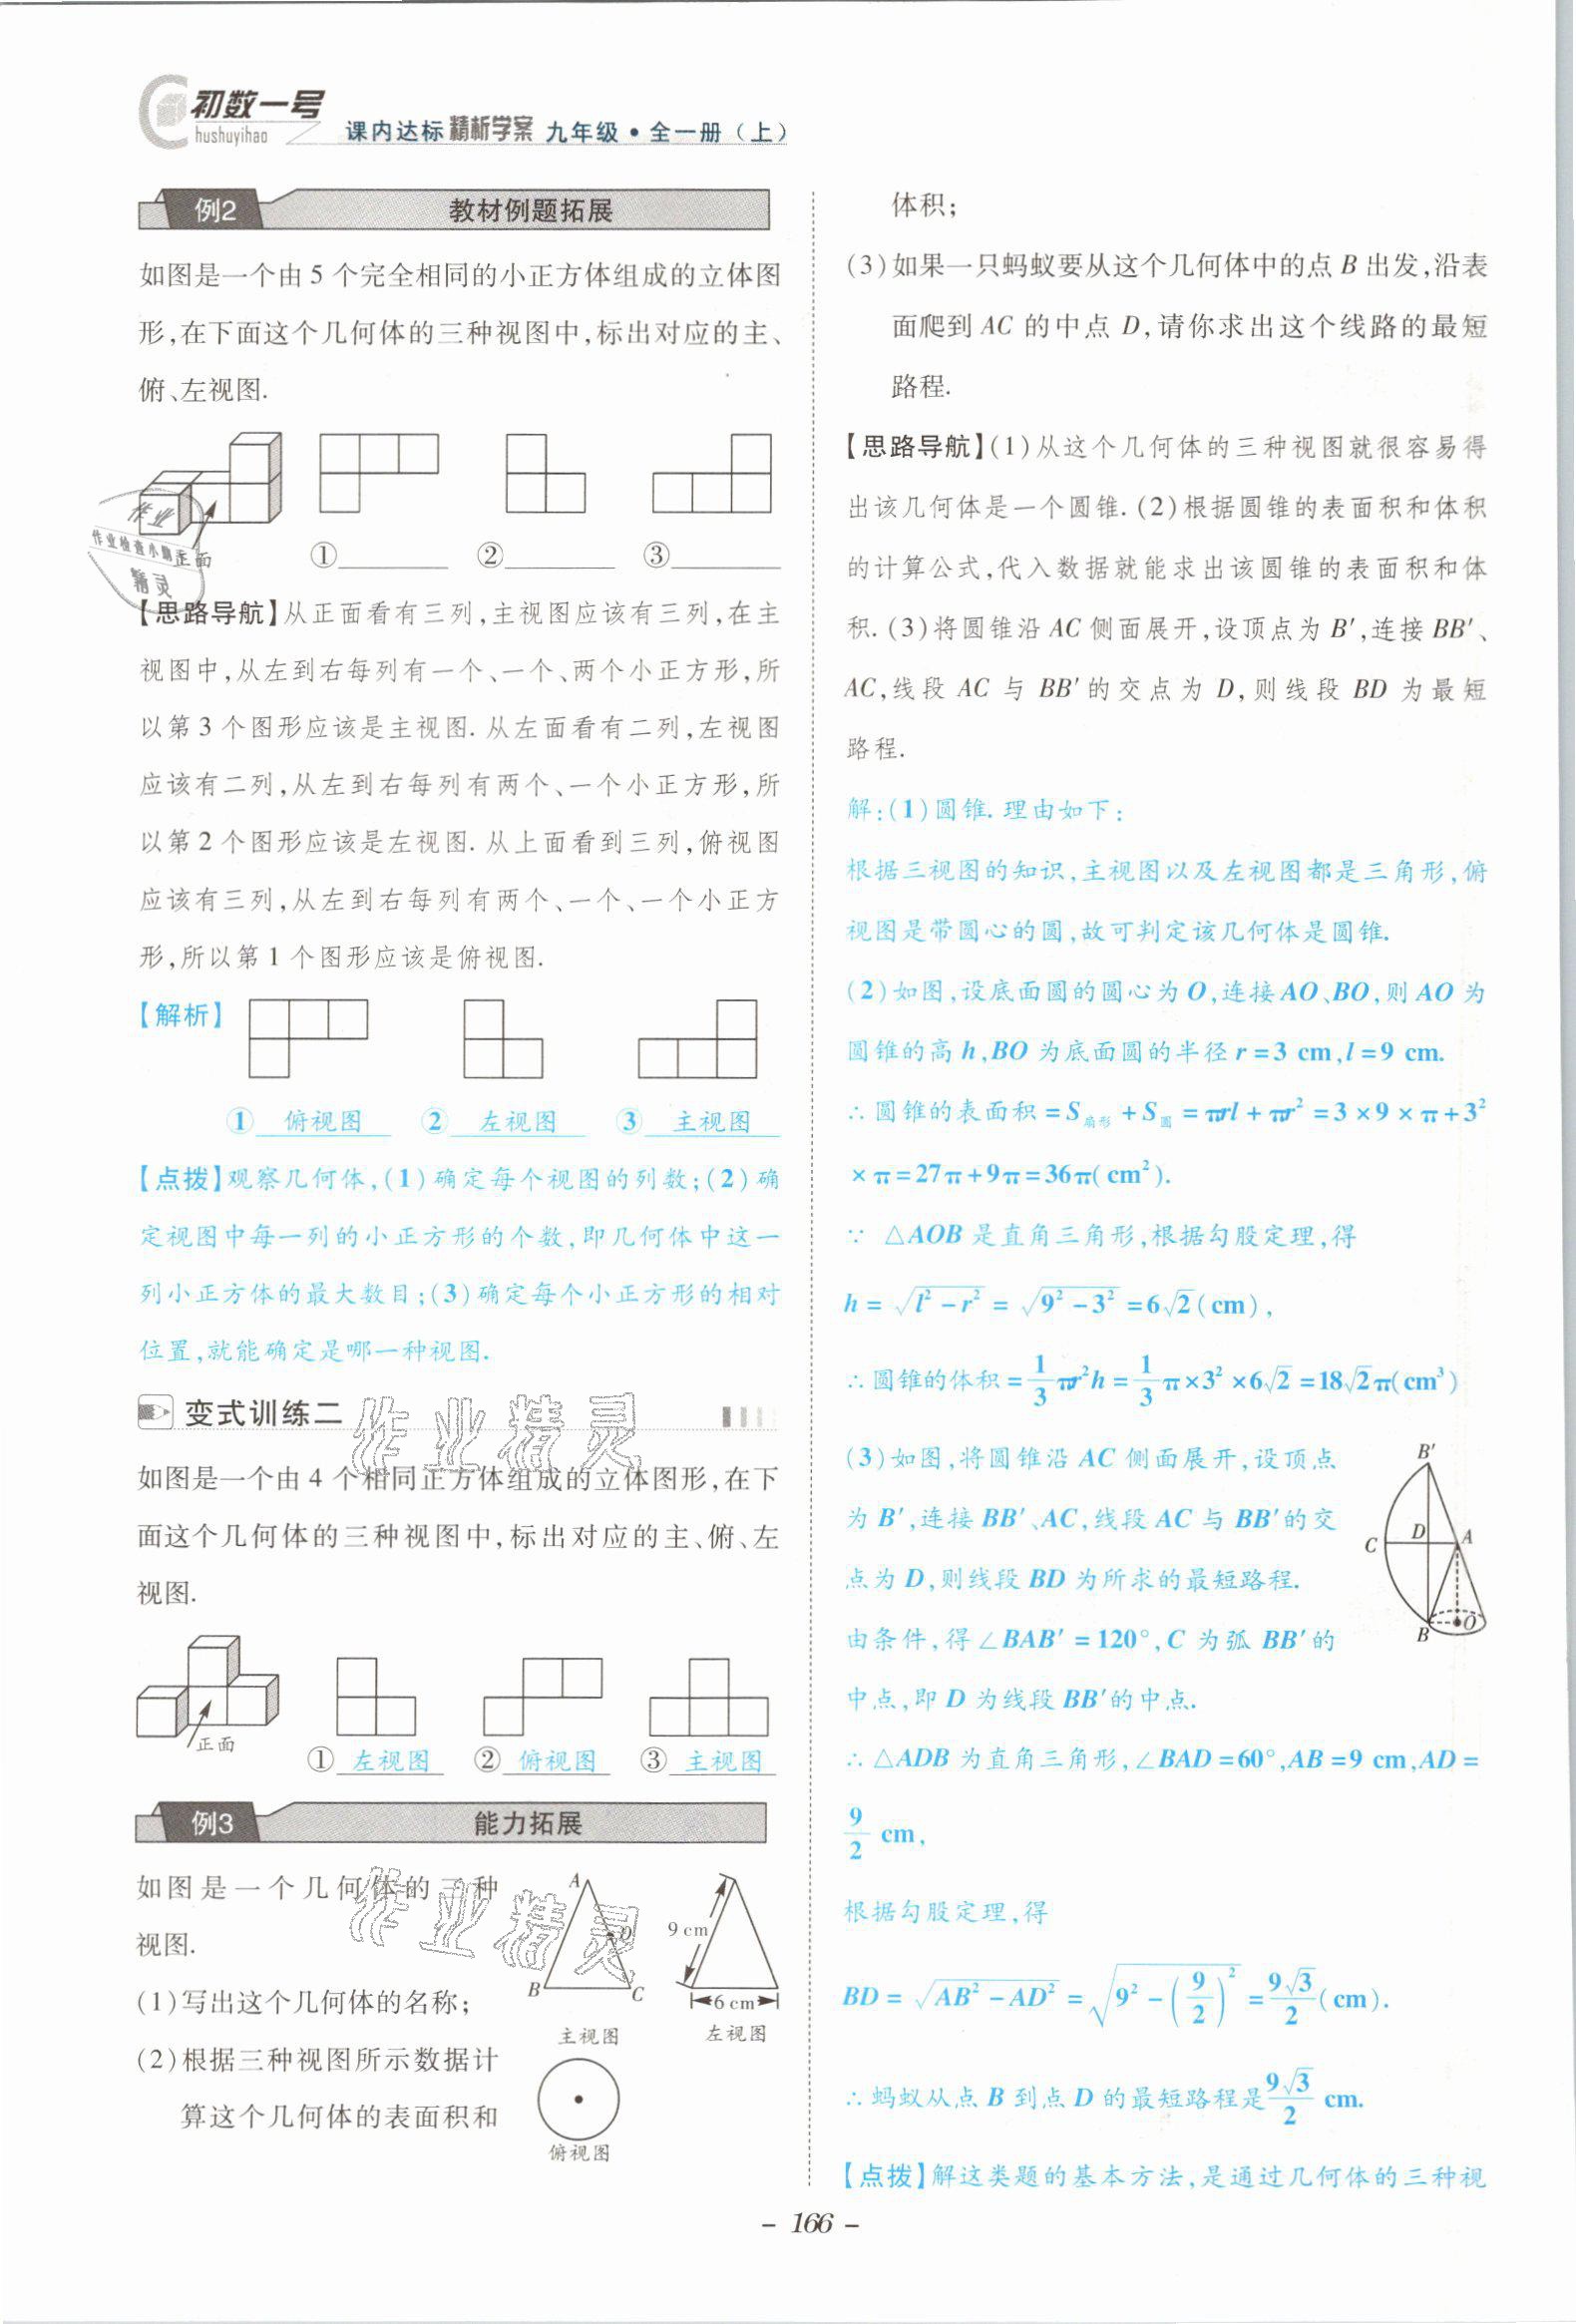 初数一号
hushuyihao
课内达标 精析学案 九年级·全一册(上)
例2 教材例题拓展
如图是一个由5个完全相同的小正方体组成的立体图
形,在下面这个几何体的三种视图中,标出对应的主、
俯、左视图.
正面
① ② ③
【思路导航】从正面看有三列,主视图应该有三列,在主
视图中,从左到右每列有一个、一个、两个小正方形,所
以第3个图形应该是主视图.从左面看有二列,左视图
应该有二列,从左到右每列有两个、一个小正方形,所
以第2个图形应该是左视图.从上面看到三列,俯视图
应该有三列,从左到右每列有两个、一个、一个小正方
形,所以第1个图形应该是俯视图.
【解析】
① 俯视图 ② 左视图 ③ 主视图
【点拨】观察几何体,(1)确定每个视图的列数;(2)确
定视图中每一列的小正方形的个数,即几何体中这一
列小正方体的最大数目;(3)确定每个小正方形的相对
位置,就能确定是哪一种视图.
变式训练二
如图是一个由4个相同正方体组成的立体图形,在下
面这个几何体的三种视图中,标出对应的主、俯、左
视图.
正面
① 左视图 ② 俯视图 ③ 主视图
例3 能力拓展
如图是一个几何体的三种
视图.
(1)写出这个几何体的名称;
(2)根据三种视图所示数据计
算这个几何体的表面积和
A
D
B
C
主视图
9 cm
6 cm
左视图
俯视图
体积;
(3)如果一只蚂蚁要从这个几何体中的点B出发,沿表
面爬到AC的中点D,请你求出这个线路的最短
路程.
【思路导航】(1)从这个几何体的三种视图就很容易得
出该几何体是一个圆锥.(2)根据圆锥的表面积和体积
的计算公式,代入数据就能求出该圆锥的表面积和体
积.(3)将圆锥沿AC侧面展开,设顶点为B′,连接BB′、
AC,线段AC与BB′的交点为D,则线段BD为最短
路程.
解:(1)圆锥.理由如下:
根据三视图的知识,主视图以及左视图都是三角形,俯
视图是带圆心的圆,故可判定该几何体是圆锥.
(2)如图,设底面圆的圆心为O,连接AO、BO,则AO为
圆锥的高h,BO为底面圆的半径r=3 cm,l=9 cm.
∴圆锥的表面积=S扇形+S圆=πrl+πr²=3×9×π+3²
×π=27π+9π=36π(cm²).
∵ △AOB是直角三角形,根据勾股定理,得
h=√(l²-r²)=√(9²-3²)=6√2(cm),
∴圆锥的体积=1/3πr²h=1/3π×3²×6√2=18√2π(cm³)
(3)如图,将圆锥沿AC侧面展开,设顶点
为B′,连接BB′、AC,线段AC与BB′的交
点为D,则线段BD为所求的最短路程.
由条件,得∠BAB′=120°,C为弧BB′的
中点,即D为线段BB′的中点.
B′
C
D
A
B
O
∴△ADB为直角三角形,∠BAD=60°,AB=9 cm,AD=
9/2 cm,
根据勾股定理,得
BD=√(AB²-AD²)=√(9²-(9/2)²)=9√3/2(cm).
∴蚂蚁从点B到点D的最短路程是9√3/2 cm.
【点拨】解这类题的基本方法,是通过几何体的三种视
- 166 -
作业
作业检查小助手
精灵
作业精灵
作业精灵